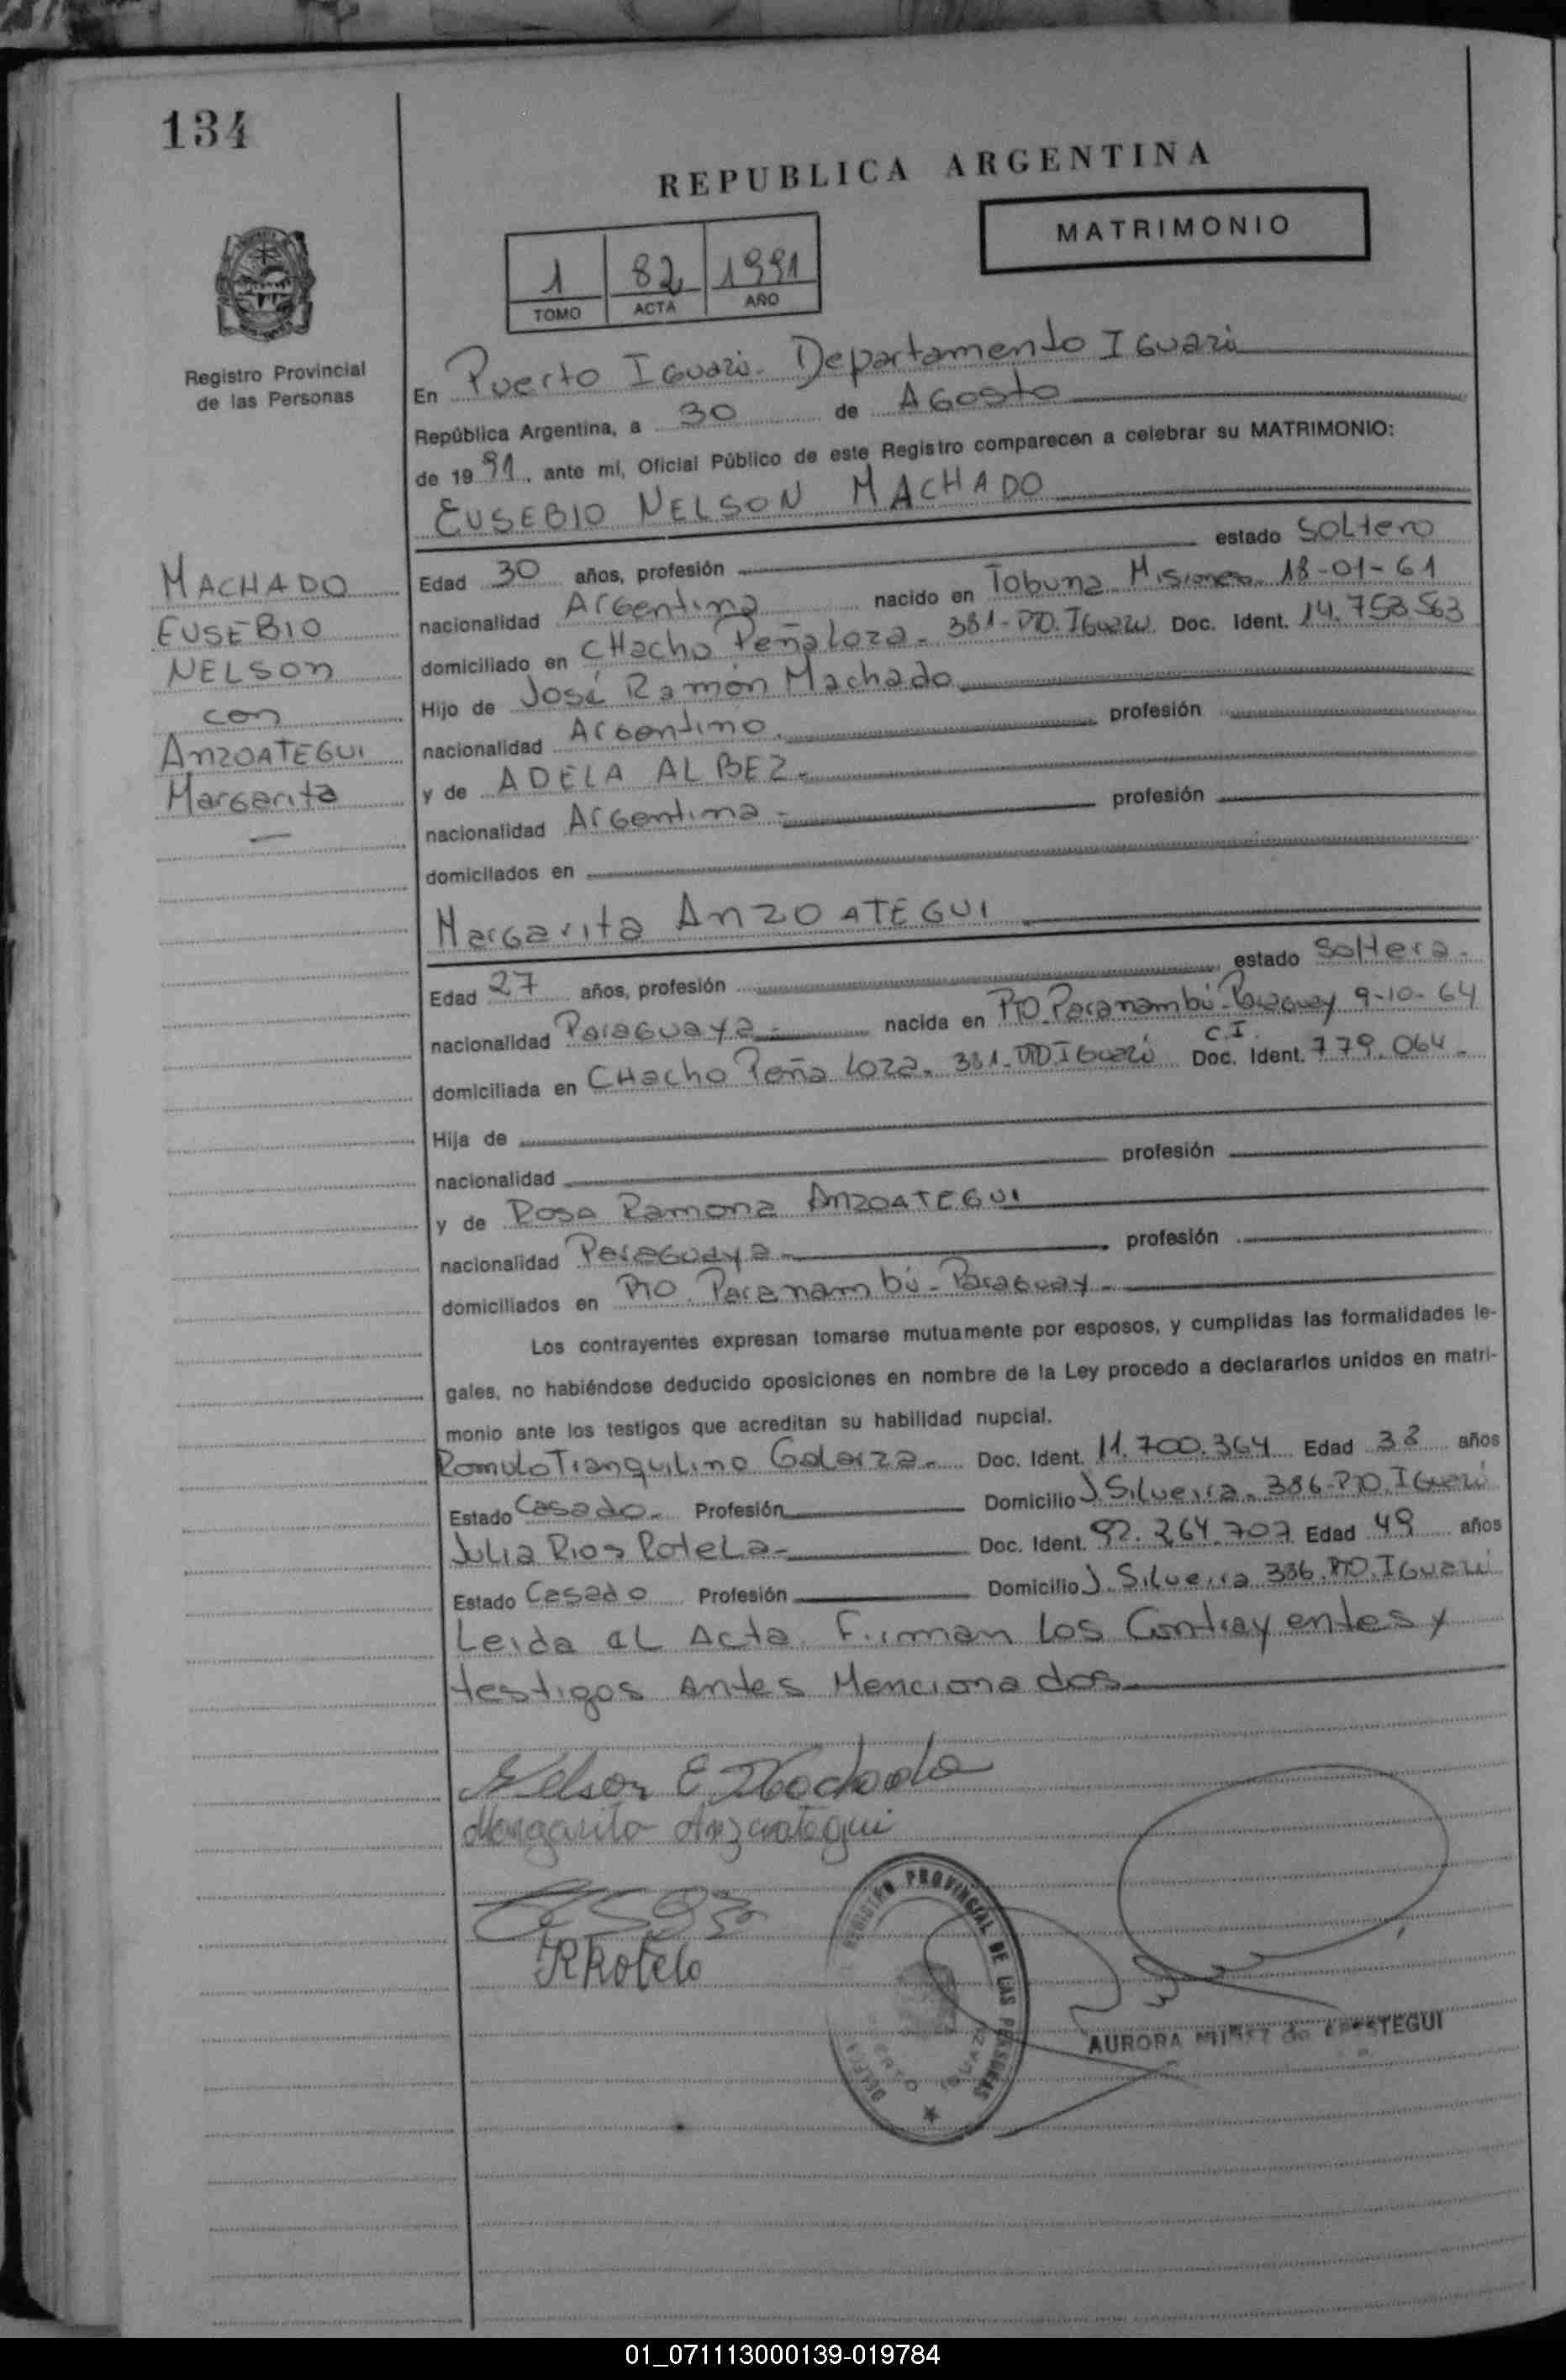 134
REPUBLICA ARGENTINA
MATRIMONIO
1 82 1991
TOMO ACTA AÑO
Registro Provincial
de las Personas
En Puerto Iguazú. Departamento Iguazú
República Argentina, a 30 de Agosto
de 19 91, ante mí, Oficial Público de este Registro comparecen a celebrar su MATRIMONIO:
EUSEBIO NELSON MACHADO
MACHADO
EUSEBIO
NELSON
con
ANZOATEGUI
Margarita
Edad 30 años, profesión estado Soltero
nacionalidad Argentina nacido en Tobuna Misiones 18-01-61
domiciliado en CHacho Peñaloza. 381-PTO.Iguazú Doc. Ident. 14.758.563
Hijo de José Ramón Machado
nacionalidad Argentino. profesión
y de ADELA ALBEZ.
nacionalidad Argentina profesión
domiciliados en
Margarita ANZOATEGUI
Edad 27 años, profesión estado Soltera.
nacionalidad Paraguaya nacida en PTO.Paranambú-Paraguay 9-10-64
C.I.
domiciliada en CHacho Peña loza. 381-PTO.Iguazú Doc. Ident. 779.064
Hija de
nacionalidad profesión
y de Rosa Ramona ANZOATEGUI
nacionalidad Paraguaya profesión
domiciliados en PTO. Paranambú-Paraguay
Los contrayentes expresan tomarse mutuamente por esposos, y cumplidas las formalidades le-
gales, no habiéndose deducido oposiciones en nombre de la Ley procedo a declararlos unidos en matri-
monio ante los testigos que acreditan su habilidad nupcial.
Romulo Tranquilino Galarza. Doc. Ident. 11.700.364 Edad 38 años
Estado Casado. Profesión Domicilio J.Silveira. 386-PTO.Iguazú
Julia Rios Rotela Doc. Ident. 92.264.707 Edad 49 años
Estado Casado Profesión Domicilio J.Silveira 386.PTO.Iguazú
Leida el Acta. Firman los Contrayentes y
testigos Antes Mencionados
Nelson E. Machado
Margarita Anzoategui
JRRotela
REGISTRO PROVINCIAL DE LAS PERSONAS
AURORA
01_071113000139-019784